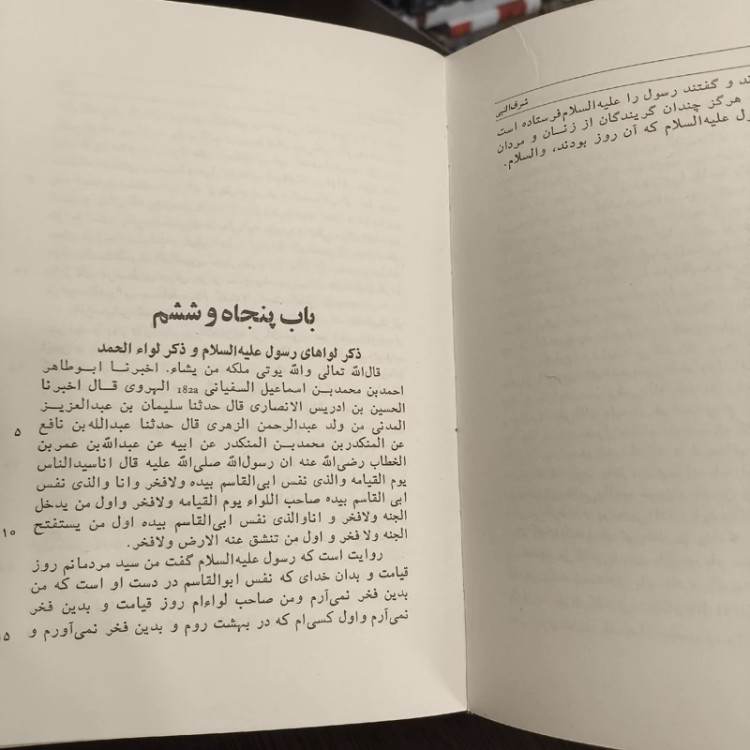 شرف‌النبی
ند و گفتند رسول را علیه‌السلام فرستاده است
هرگز چندان گریندگان از زنان و مردان
ل علیه‌السلام که آن روز بودند، والسلام.
باب پنجاه و ششم
ذکر لواهای رسول علیه‌السلام و ذکر لواء الحمد
قال‌الله تعالی والله یوتی ملکه من یشاء. اخبرنا ابوطاهر
احمدبن محمدبن اسماعیل السفیانی 182a الهروی قال اخبرنا
الحسین بن ادریس الانصاری قال حدثنا سلیمان بن عبدالعزیز
المدنی من ولد عبدالرحمن الزهری قال حدثنا عبدالله‌بن نافع
5
عن المنکدربن محمدبن المنکدر عن ابیه عن عبدالله‌بن عمربن
الخطاب رضی‌الله عنه ان رسول‌الله صلی‌الله علیه قال اناسیدالناس
یوم القیامه والذی نفس ابی‌القاسم بیده ولافخر وانا والذی نفس
ابی القاسم بیده صاحب اللواء یوم القیامه ولافخر واول من یدخل
الجنه ولافخر و اناوالذی نفس ابی‌القاسم بیده اول من یستفتح
10
الجنه ولافخر و اول من تنشق عنه الارض ولافخر.
روایت است که رسول علیه‌السلام گفت من سید مردمانم روز
قیامت و بدان خدای که نفس ابوالقاسم در دست او است که من
بدین فخر نمی‌آرم ومن صاحب لواءام روز قیامت و بدین فخر
نمی‌آرم واول کسی‌ام که در بهشت روم و بدین فخر نمی‌آورم و
15